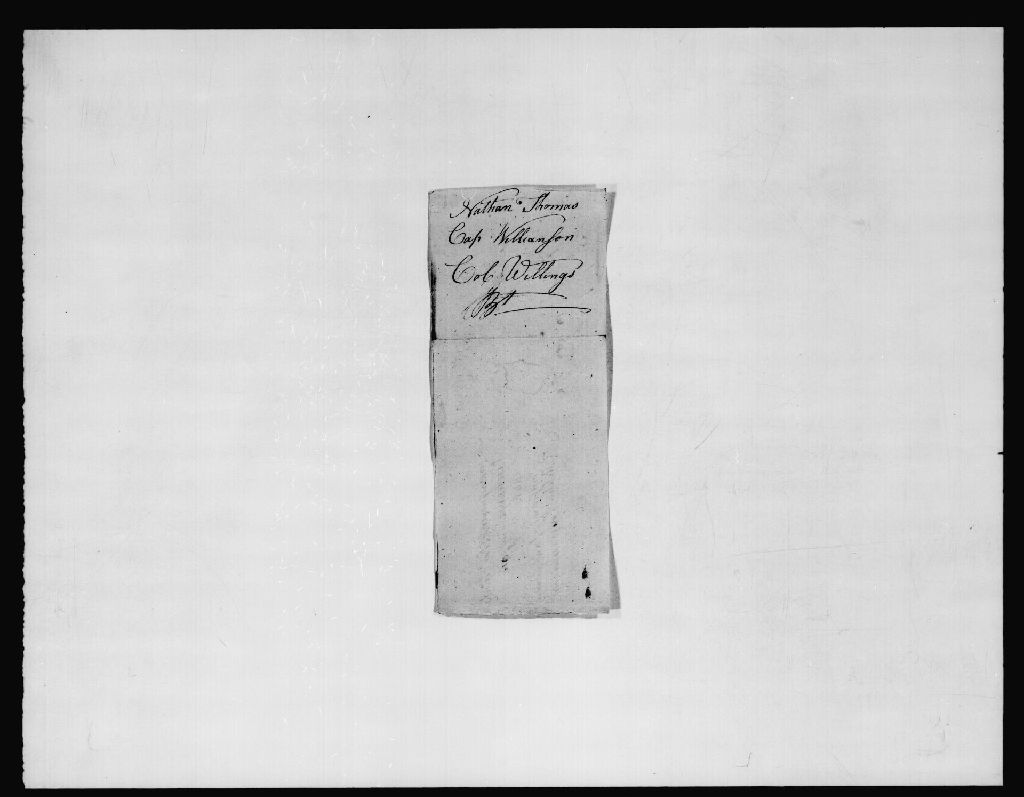 Nathan.. Thomas
Cap Willianson
Col Willings